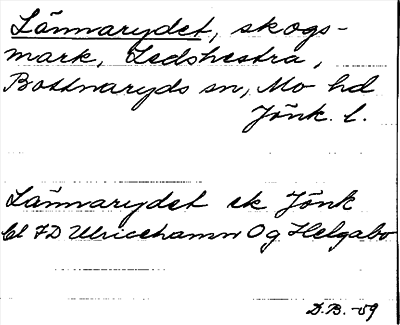 Lännarydet, skogs-
mark, Ledshestra,
Bottnaryds sn, Mo hd
Jönk. l.
Lännarydet ek Jönk
bl 7D Ulricehamn Og Helgabo
D.B. -59